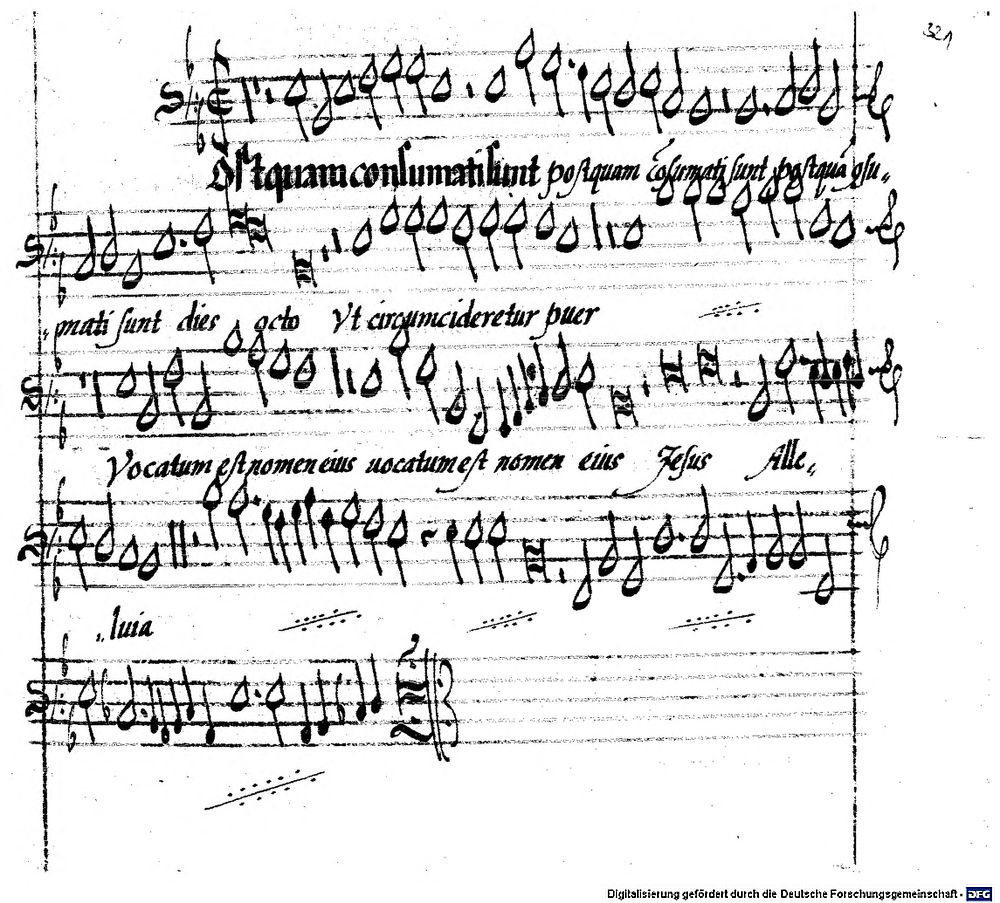 321
Postquam consumati sunt postquam cōsumati sunt postquā ɔsu„
„mati sunt dies octo Vt circumcideretur puer
Vocatum est nomen eius uocatum est nomen eius Jesus Alle„
„luia
Digitalisierung gefördert durch die Deutsche Forschungsgemeinschaft - DFG